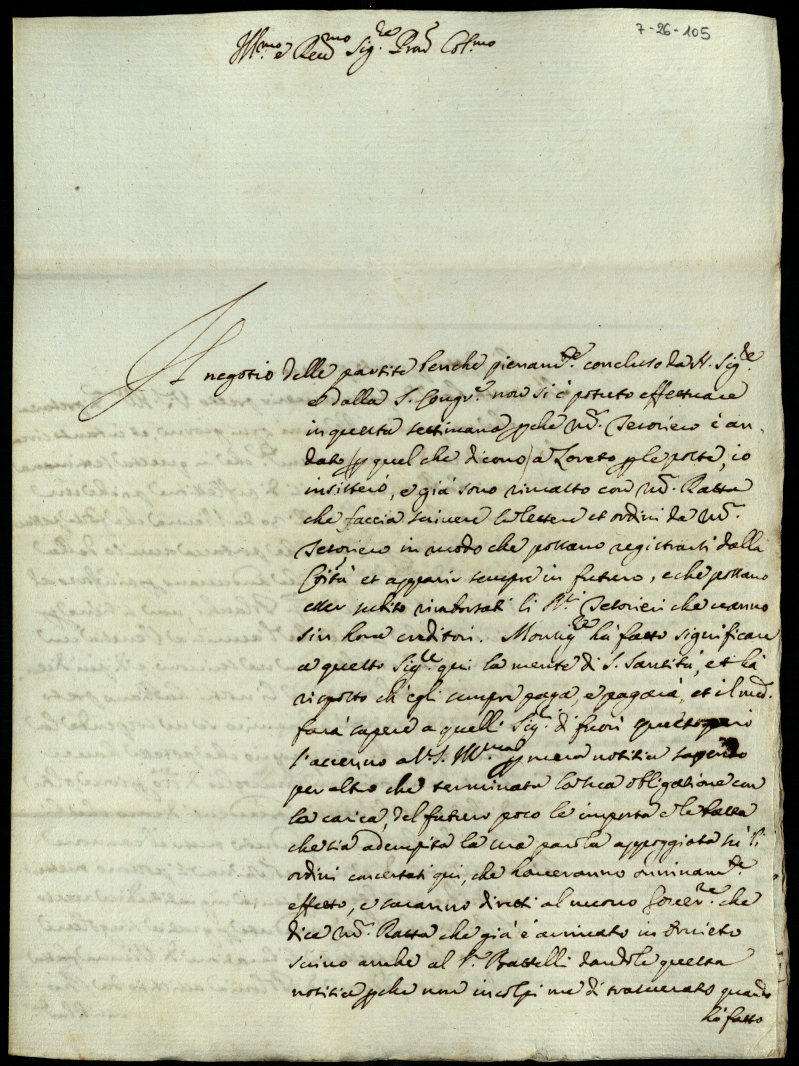 7-26-105
Ill.mo e Rev.mo Sig.re Pron Col.mo
Il negotio delle partite benche pienam.te concluso da N. Sig.re
e dalla S. Congr.e non si è potuto effettuare
in questa settimana p che M. Tesoriero è an-
dato /p quel che dicono/ a Loreto p le poste, io
insisterò, e già sono rimasto con M. Ratta
che faccia scrivere le lettere et ordini da M.
Tesoriero in modo che possano registrarsi dalla
Città et apparir sempre in futuro, e che possano
esser subito rimborsati li Tesorieri che eranno
sin hora creditori. Mons. hà fatto significare
a questo Sig.re qui la mente di S. Santità, et hà
risposto ch'egli sempre paga, e pagarà, et il med.
farà sapere a quelli Sig. di fuori
l'accenno a V. S. Ill.ma p mera notitia sapendo
per altro che terminata la sua obligatione con
la carica, del futuro poco le importa e le basta
che sia adempita la sua parola appoggiata sù li
ordini concertati qui, che haveranno onninam.te
effetto, e saranno diretti al nuovo Gover.re che
dice M. Ratta che già è arrivato in Orvieto
scrivo anche al Battelli dandole questa
notitia p che non incolpi me di trascurato quando
hò fatto